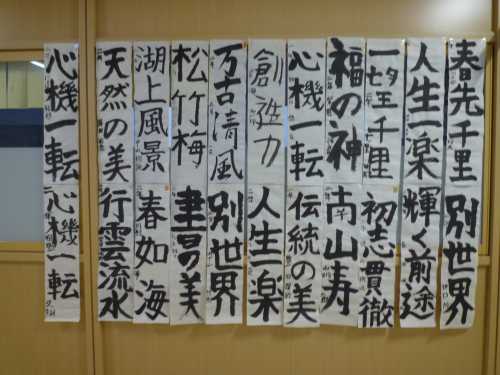 春光千里
別世界
人生一楽
輝く前途
一望千里
初志貫徹
福の神
南山寿
心機一転
伝統の美
創造力
人生一楽
万古清風
別世界
松竹梅
書の美
湖上風景
春如海
天然の美
行雲流水
心機一転
心機一転